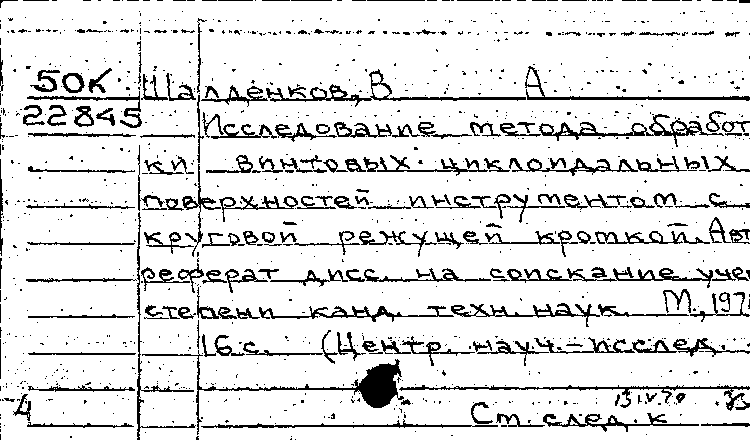 50К Шалденков, В А
22845 Исследование метода обработ
ки винтовых циклоидальных
поверхностей инструментом с
круговой режущей кроткой. Авт
реферат дисс. на соискание учен
степени канд. техн. наук. М.,
16 с. (Центр. науч.-исслед.
13 IV 70
4 См. след. к